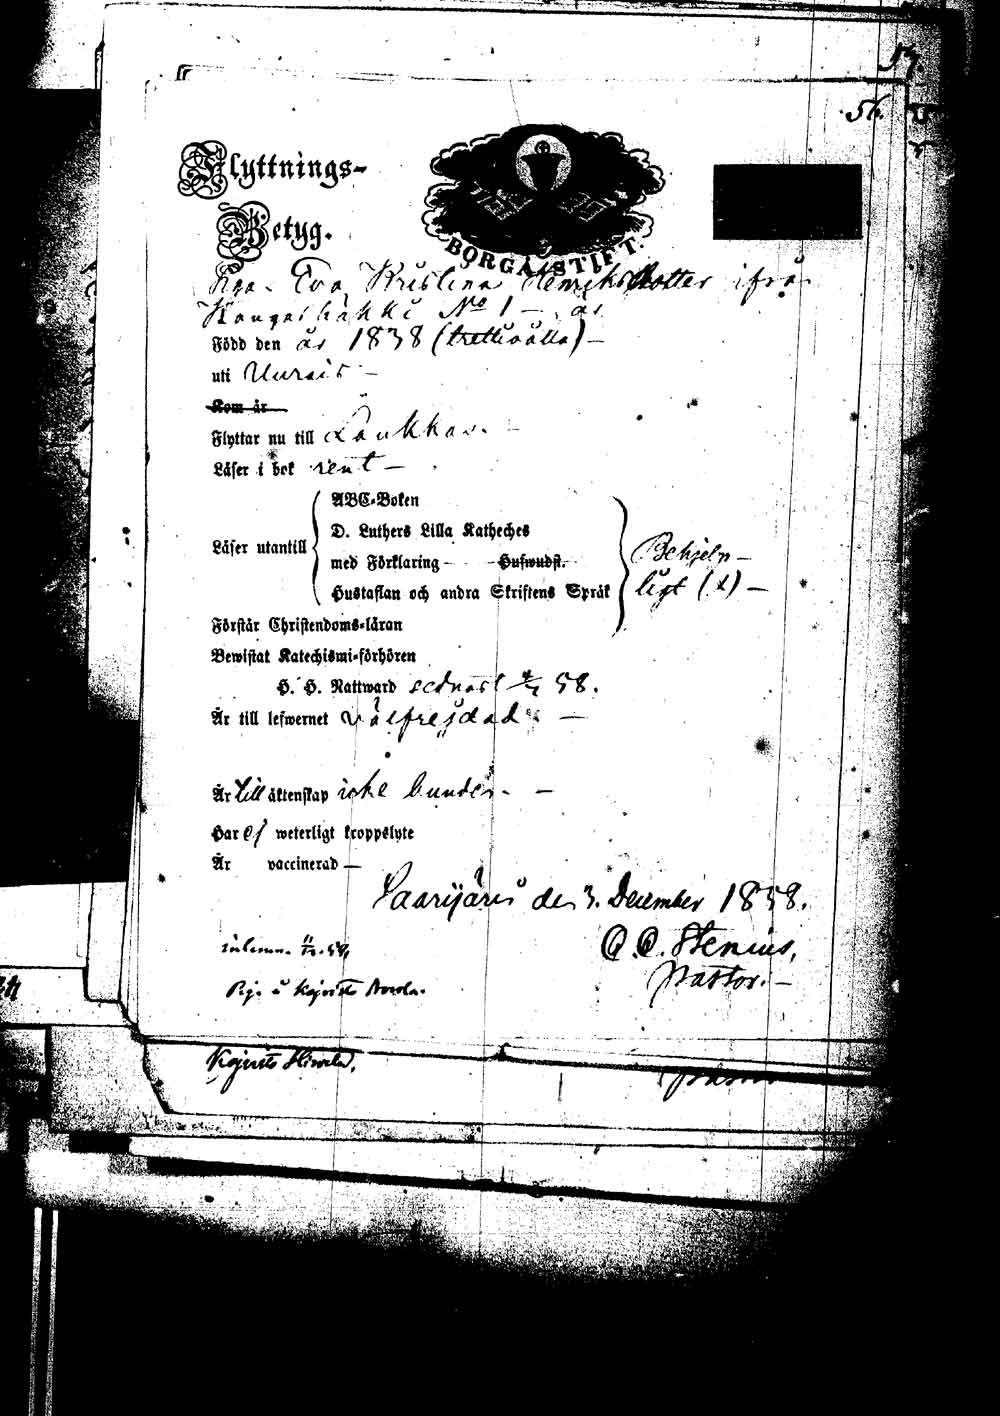 57.
56.
Flyttnings-
Betyg.
BORGÅ STIFT.
Pga. Eva Kristina Henriksdotter ifrån
Kangashäkki No 1 — är
Född den år 1838 (trettioåtta) —
uti Uurais —
Kom år
Flyttar nu till Laukkas. —
Läser i bok rent —
ABC-Boken
D. Luthers Lilla Katheches
Läser utantill
med Förklaring — Hufwudst.
Hustaflan och andra Skriftens Språk
Behjelp-
ligt (x) —
Förstår Christendoms-läran
Bewistat Katechismi-förhören
H. H. Nattward sednast 58.
Är till lefwernet välfrejdad —
Är till äktenskap icke bunden. —
Har ej weterligt kroppslyte
Är vaccinerad —
Saarijärvi den 3. December 1858.
C. C. Stenius,
Pastor. —
inlemn.
Pig. å